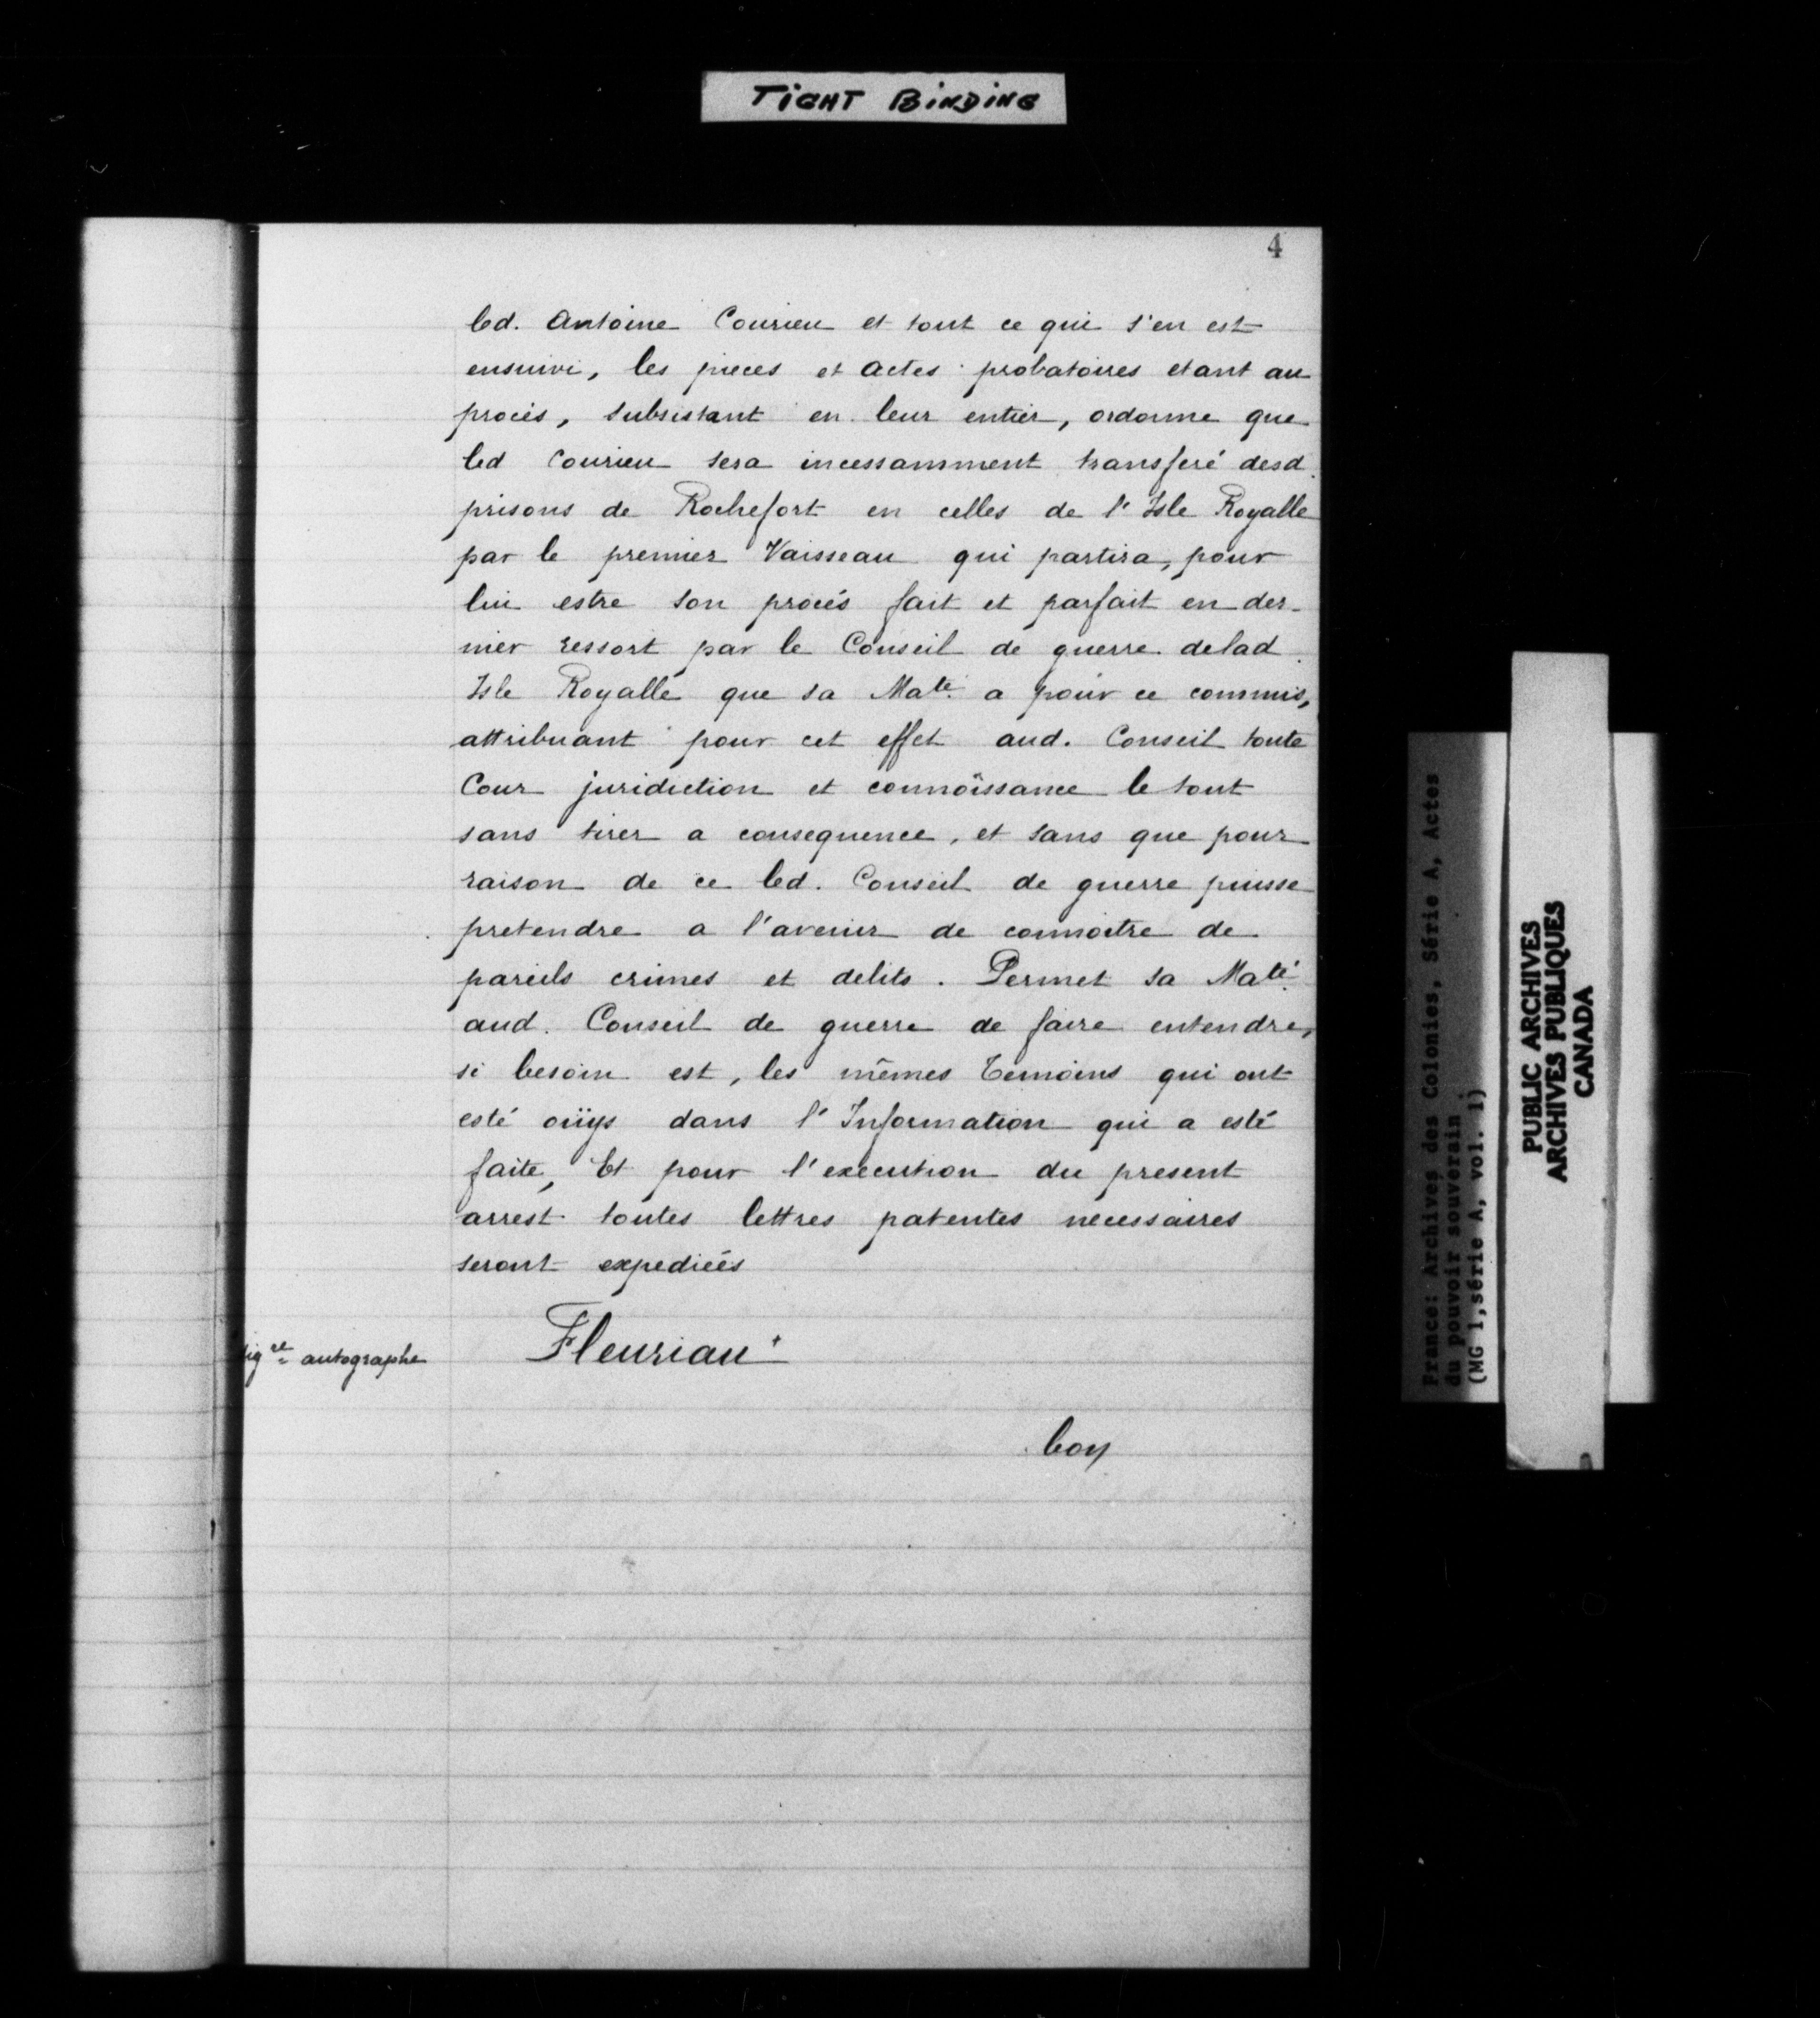 TIGHT BINDING
4
led. Antoine Courieu et tout ce qui s'en est
ensuivi, les pieces et actes probatoires etant au
procés, subsistant en leur entier, ordonne que
led Courieu sera incessamment transferé desd.
prisons de Rochefort en celles de l'Isle Royalle
par le premier Vaisseau qui partira, pour
lui estre son procés fait et parfait en der-
nier ressort par le Conseil de guerre delad.
Isle Royalle que sa Maté. a pour ce commis,
attribuant pour cet effet aud. Conseil toute
Cour juridiction et connoissance le tout
sans tirer a consequence, et sans que pour
raison de ce led. Conseil de guerre puisse
pretendre a l'avenir de connoitre de
pareils crimes et delits. Permet sa Maté.
aud. Conseil de guerre de faire entendre,
si besoin est, les mêmes temoins qui ont
esté oüys dans l'Information qui a esté
faite, Et pour l'execution du present
arrest toutes lettres patentes necessaires
seront expediées
Sigre autographe
Fleuriau
bon
France: Archives des Colonies, Série A, Actes
du pouvoir souverain
(MG 1,série A, vol. 1)
PUBLIC ARCHIVES
ARCHIVES PUBLIQUES
CANADA